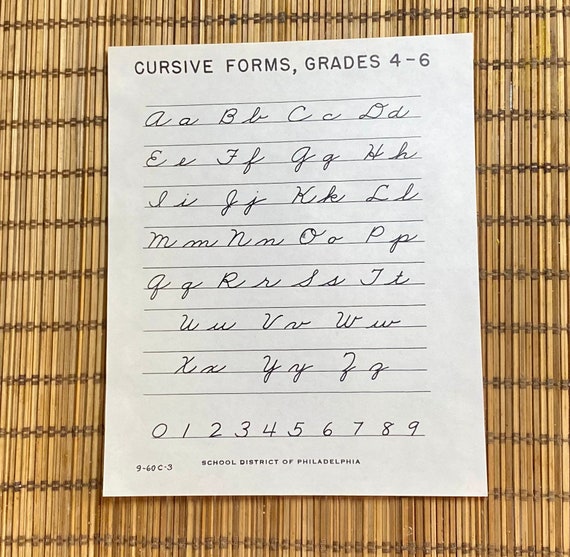 CURSIVE FORMS, GRADES 4-6
A a B b C c D d
E e F f G g H h
I i J j K k L l
M m N n O o P p
Q q R r S s T t
U u V v W w
X x Y y Z z
0 1 2 3 4 5 6 7 8 9
9-60 C-3 SCHOOL DISTRICT OF PHILADELPHIA